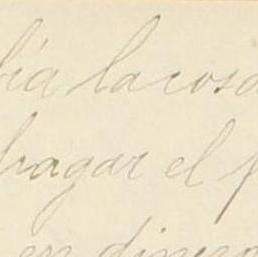 bía la cosa
bragar el p
en dinero